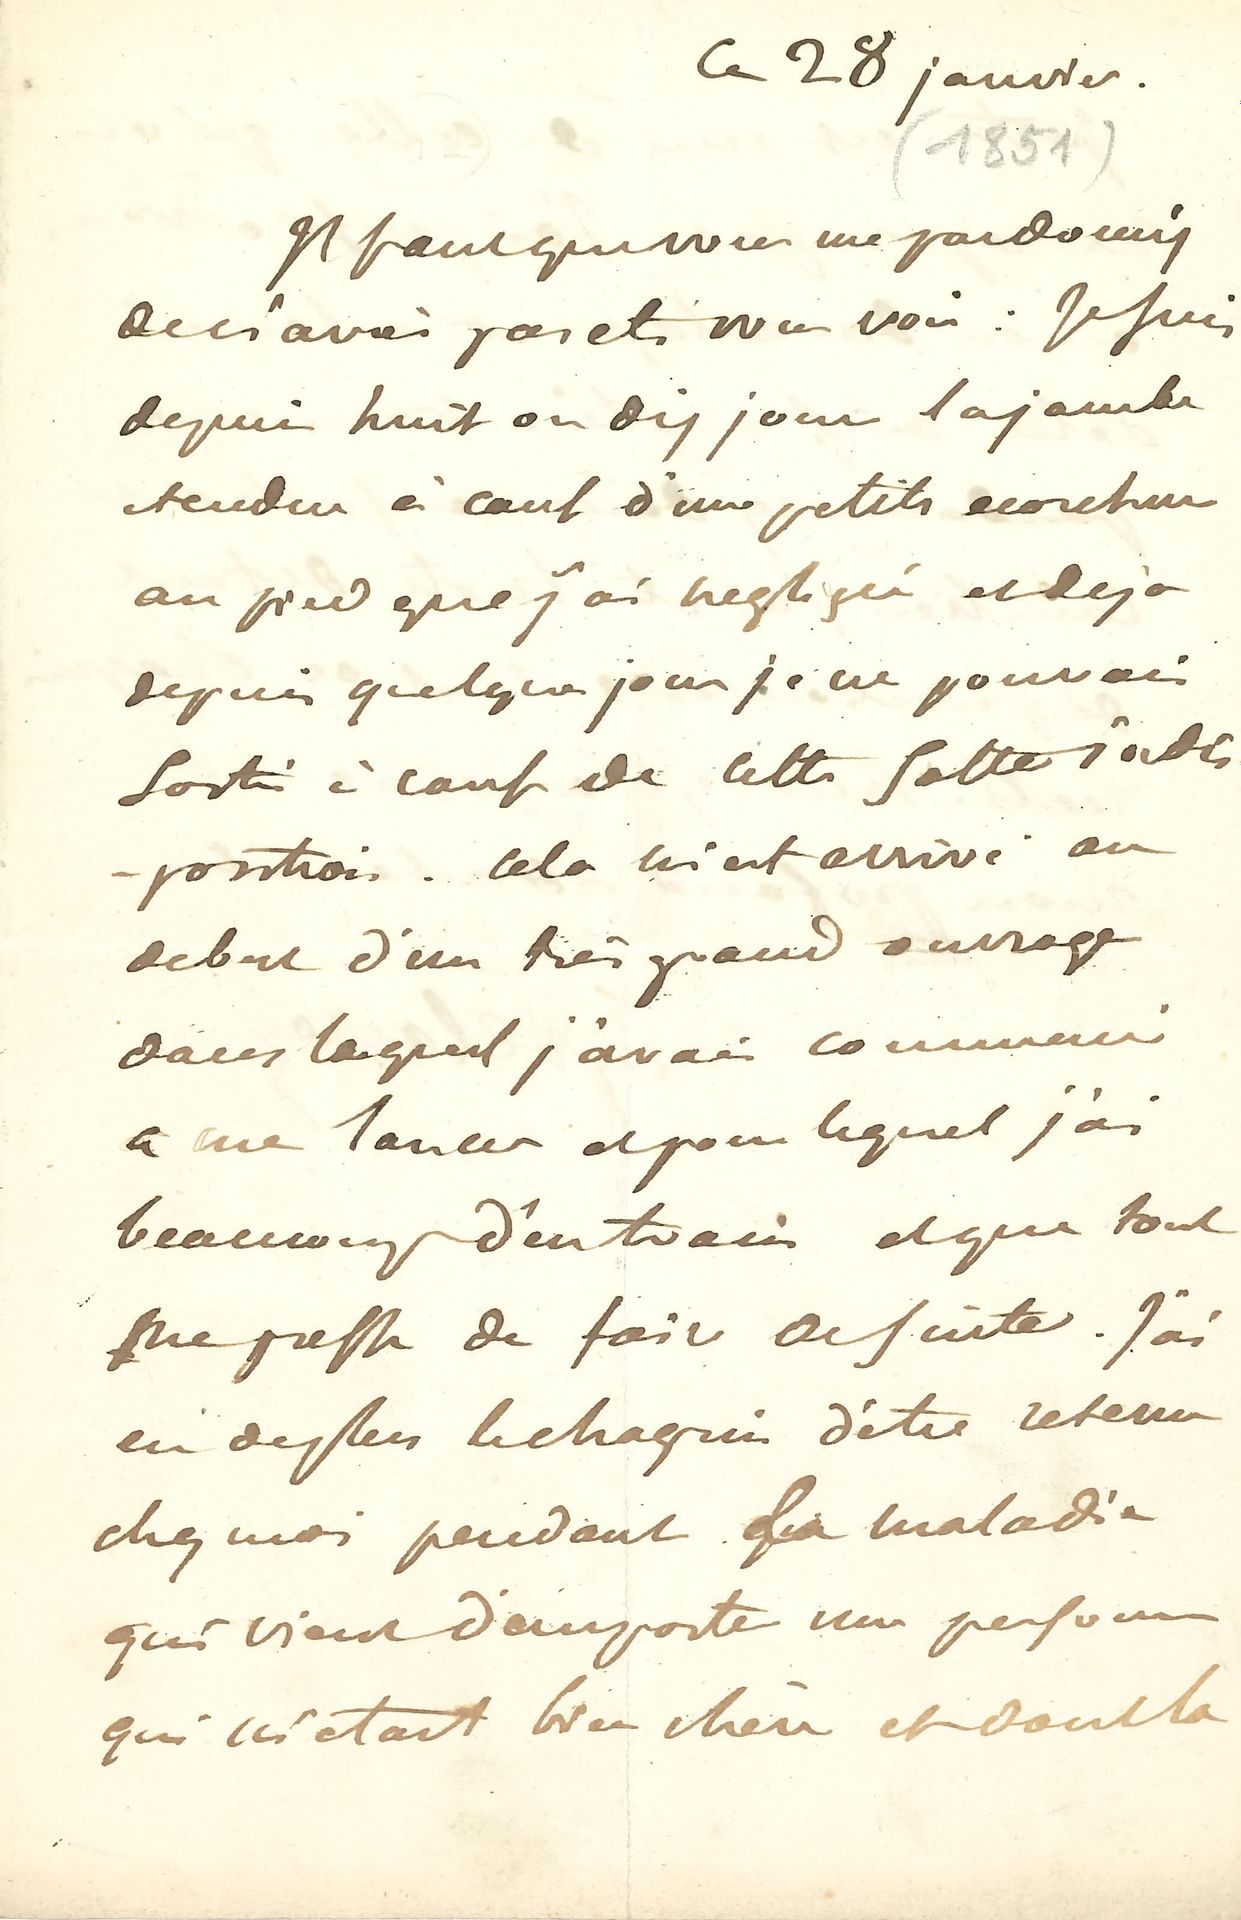 Ce 28 janvier.
(1851)
Il faut que vous me pardonniez
de n'avoir pas été vous voir : Je suis
depuis huit ou dix jours la jambe
etendue à cause d'une petite ecorchure
au pied que j'ai negligée et deja
depuis quelques jours je ne pouvais
Sortir à cause de cette Sotte indis
-position. Cela m'est arrivé au
debut d'un très grand ouvrage
dans lequel j'avais commencé
a me lancer et pour lequel j'ai
beaucoup d'entrain et que tout
me presse de faire de suite. J'ai
eu de plus le chagrin d'être retenu
chez moi pendant la maladie
qui vient d'emporter une personne
qui m'etait bien chère et dont la